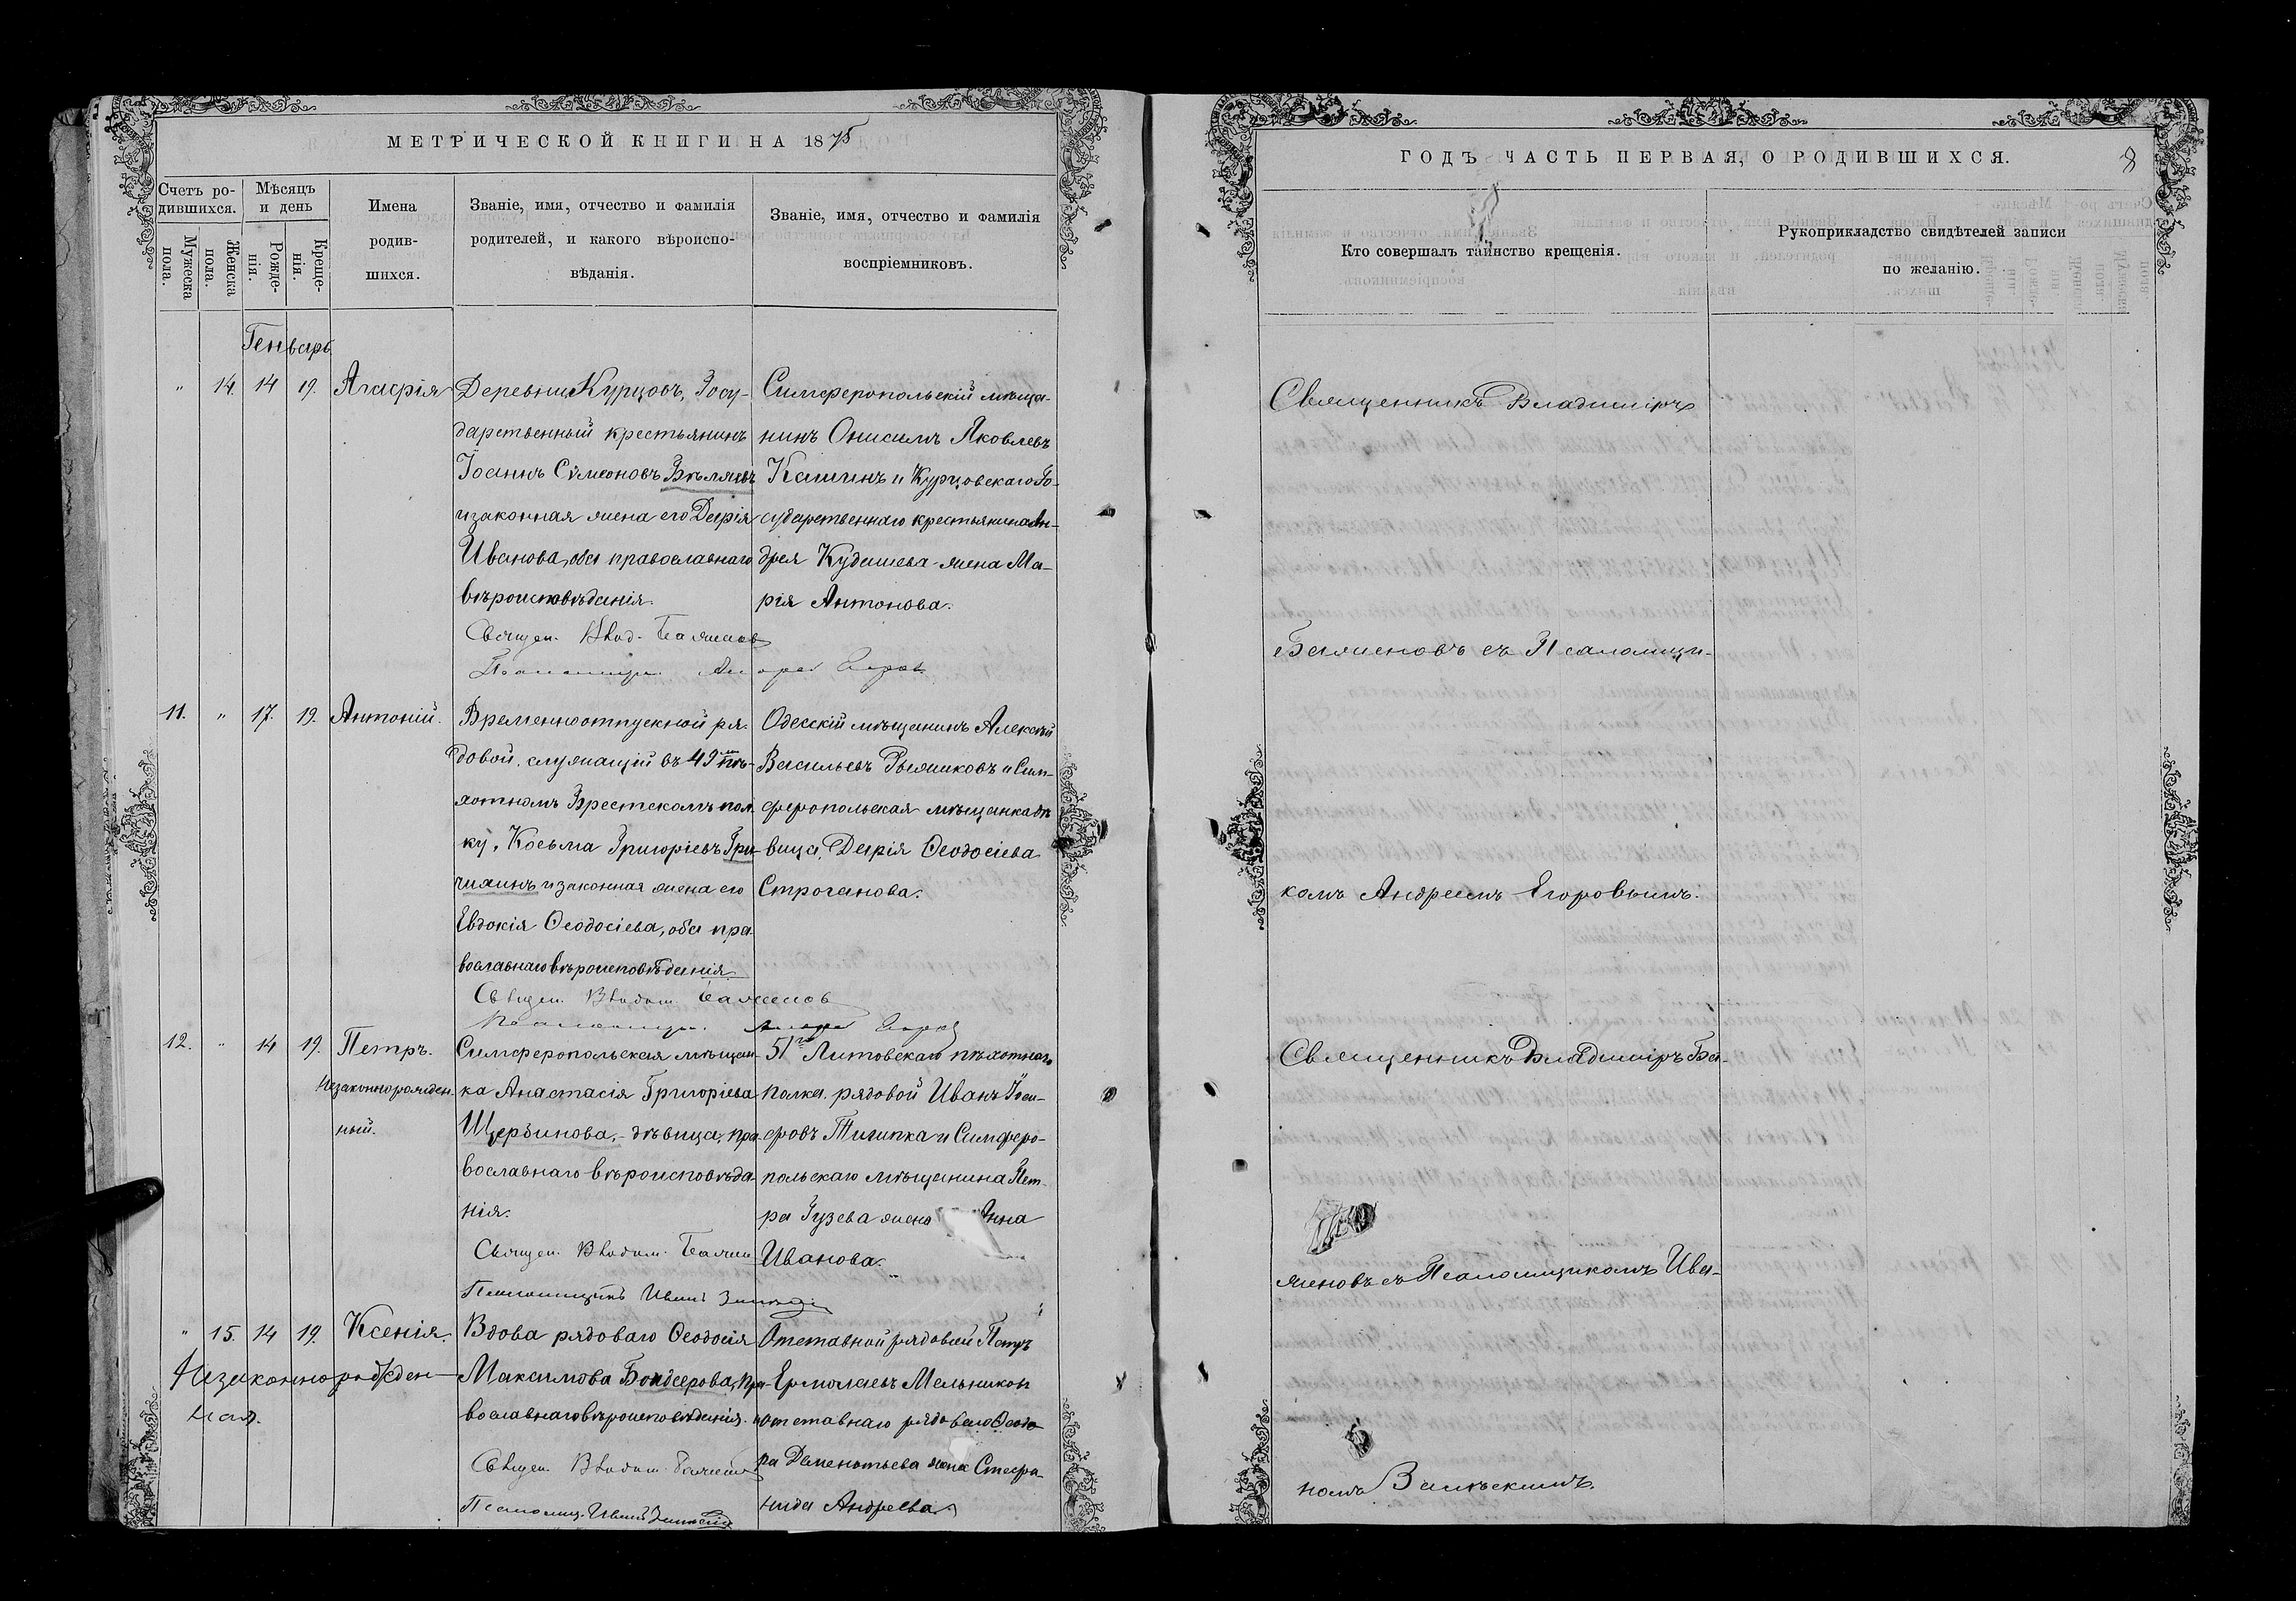 МЕТРИЧЕСКОЙ КНИГИ НА 1875
Счетъ ро-
дившихся.
Мужеска
пола.
Женска
пола.
Мѣсяцъ
и день
Рожде-
нія.
Креще-
нія.
Имена
родив-
шихся.
Званіе, имя, отчество и фамилія
родителей, и какого вѣроиспо-
вѣданія.
Званіе, имя, отчество и фамилія
воспріемниковъ.
Генварь
" 14. 14 19. Агафія
Деревни Курцовъ, Госу-
дарственный крестьянинъ
Іоаннъ Сѵмеоновъ Бѣляевъ
и законная жена его Дарія
Иванова, оба православнаго
вѣроисповѣданія.
Священ. Влад. Баженов
Псаломщ. Андрей Егоров
Симферопольскій мѣща-
нинъ Онисимъ Яковлевъ
Кашинъ и Курцовскаго Го-
сударственнаго крестьянина Ан-
дрея Кудашева жена Ма-
рія Антонова.
11. " 17. 19. Антоній.
Временноотпускной ря-
довой, служащій въ 49м пѣ-
хотномъ Брестскомъ пол-
ку, Косьма Григоріевъ Гри-
чихинъ и законная жена его
Евдокія Ѳеодосіева, оба пра-
вославнаго вѣроисповѣданія.
Священ. Владим. Баженов
Псаломщ. Андрей Егоров
Одесскій мѣщанинъ Алексѣй
Васильевъ Рыжиковъ и Сим-
феропольская мѣщанка дѣ
вица, Дарія Ѳеодосіева
Строганова.
12. " 14 19. Петръ.
Незаконнорожден-
ный.
Симферопольская мѣщан-
ка Анастасія Григоріева
Щербинова, - дѣвица, пра-
вославнаго вѣроисповѣда-
нія.
Священ. Владим. Бажен
Псаломщикъ Иванъ
51го Литовскаго пѣхотнаго
полка рядовой Иванъ Іоси-
фовъ Тигипка и Симферо-
польскаго мѣщанина Пет-
ра Гузева жена Анна
Иванова.
" 15. 14 19. Ксенія.
Незаконнорожден-
ная.
Вдова рядоваго Ѳеодосія
Максимова Бондарова, пра-
вославнаго вѣроисповѣданія.
Священ. Владим. Баженов
Псаломщ. Иванъ
Отставной рядовой Петръ
Ермолаевъ Мельников
и отставнаго рядоваго Ѳеодо
ра Дементьева жена Стефа-
нида Андреева.
ГОДЪ ЧАСТЬ ПЕРВАЯ, О РОДИВШИХСЯ.
8
Кто совершалъ таинство крещенія.
Рукоприкладство свидѣтелей записи
по желанію.
Священникъ Владиміръ
Баженовъ съ Псаломщи-
комъ Андреемъ Егоровымъ.
Священникъ Владиміръ Ба-
женовъ съ Псаломщикомъ Ива-
номъ